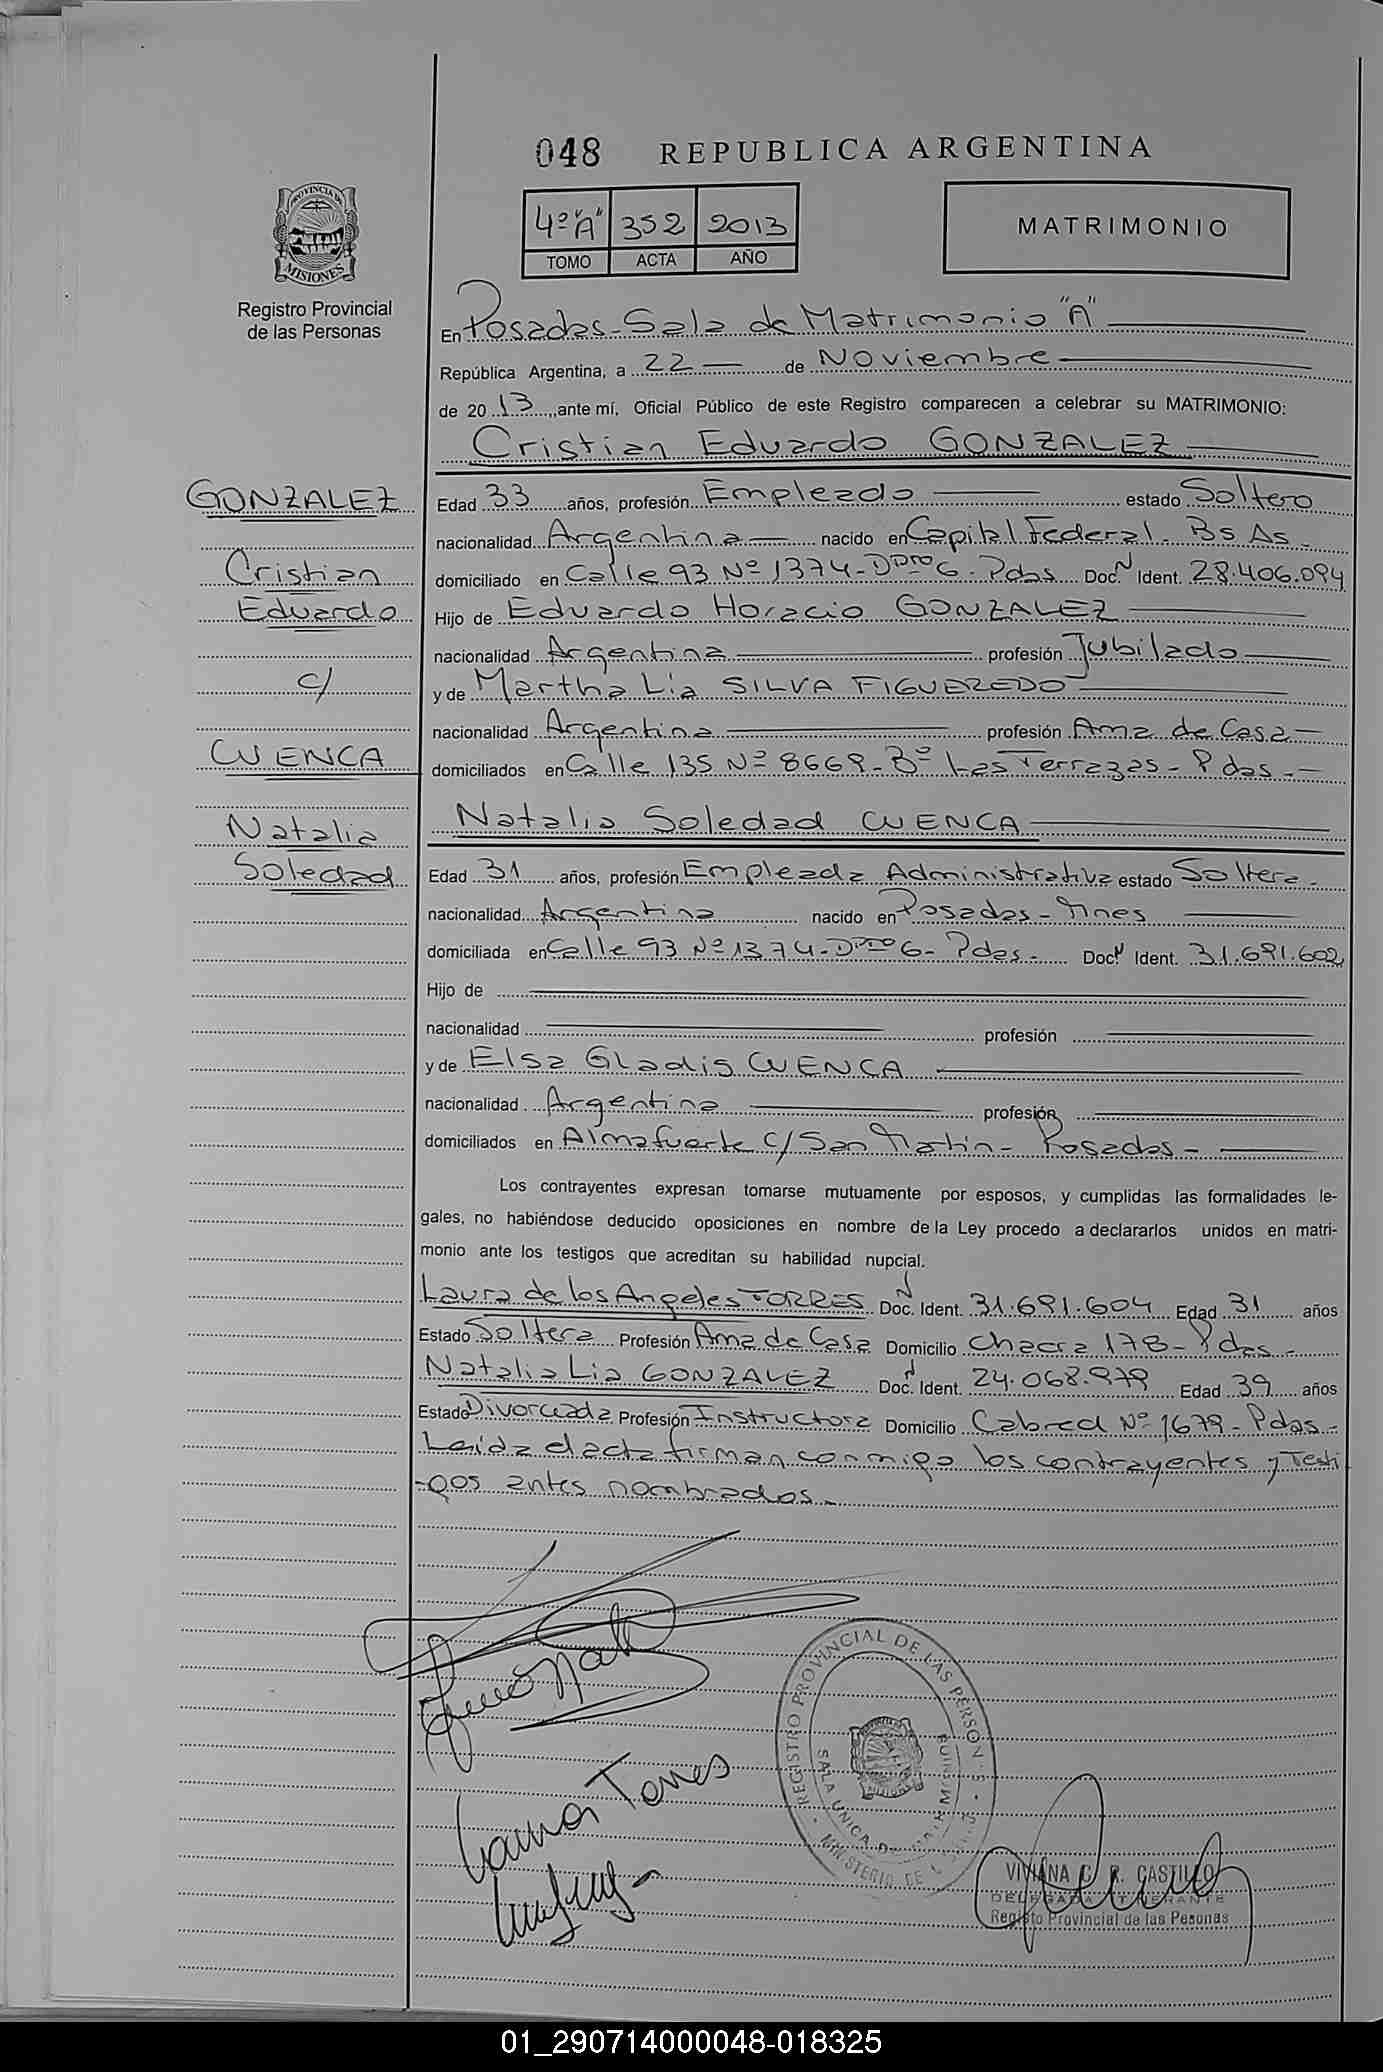 048 REPUBLICA ARGENTINA
PROVINCIA DE MISIONES
Registro Provincial
de las Personas
4º "A" 352 2013
TOMO ACTA AÑO
MATRIMONIO
En Posadas-Sala de Matrimonio "A"
República Argentina, a 22 de Noviembre
de 2013, ante mí, Oficial Público de este Registro comparecen a celebrar su MATRIMONIO:
Cristian Eduardo GONZALEZ
GONZALEZ
Cristian
Eduardo
c/
CUENCA
Natalia
Soledad
Edad 33 años, profesión Empleado estado Soltero
nacionalidad Argentina nacido en Capital Federal - Bs As -
domiciliado en Calle 93 Nº 1374 - Dpto 6 - Pdas Doc. N Ident. 28.406.094
Hijo de Eduardo Horacio GONZALEZ
nacionalidad Argentina profesión Jubilado
y de Martha Lia SILVA FIGUEREDO
nacionalidad Argentina profesión Ama de Casa
domiciliados en Calle 135 Nº 8669 - Bº Las Terrazas - Pdas -
Natalia Soledad CUENCA
Edad 31 años, profesión Empleada Administrativa estado Soltera -
nacionalidad Argentina nacido en Posadas - Mnes
domiciliada en Calle 93 Nº 1374 - Dpto 6 - Pdas - Doc. N Ident. 31.691.602
Hijo de
nacionalidad profesión
y de Elsa Gladis CUENCA
nacionalidad Argentina profesión
domiciliados en Almafuerte c/ San Martin - Posadas -
Los contrayentes expresan tomarse mutuamente por esposos, y cumplidas las formalidades le-
gales, no habiéndose deducido oposiciones en nombre de la Ley procedo a declararlos unidos en matri-
monio ante los testigos que acreditan su habilidad nupcial.
Laura de los Angeles TORRES Doc. N Ident. 31.691.604 Edad 31 años
Estado Soltera Profesión Ama de Casa Domicilio Chacra 178 - Pdas -
Natalia Lia GONZALEZ Doc. N Ident. 24.068.979 Edad 39 años
Estado Divorciada Profesión Instructora Domicilio Cabred Nº 1679 - Pdas -
Leida el acta firman conmigo los contrayentes y Testi
-gos antes nombrados -
Laura Torres
REGISTRO PROVINCIAL DE LAS PERSONAS
SALA UNICA DE
MINISTERIO DE
VIVIANA C. R. CASTILLO
DELEGADA ITINERANTE
Registro Provincial de las Pesonas
01_290714000048-018325